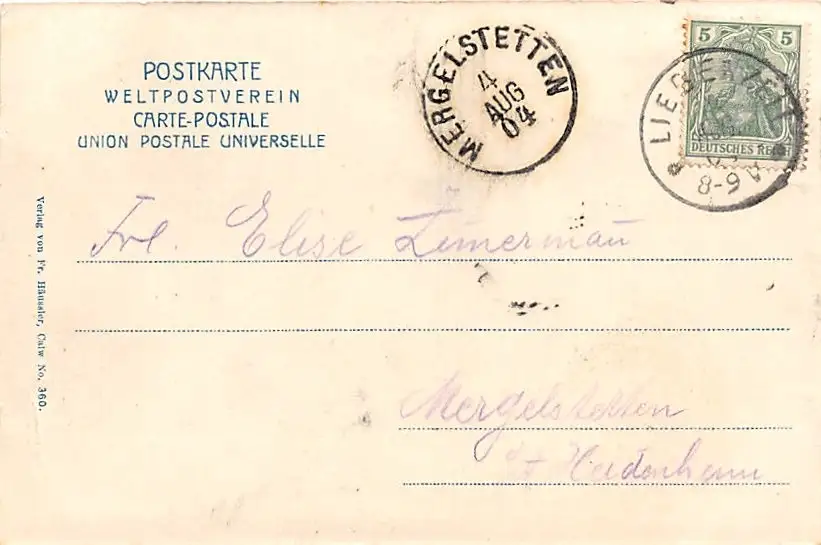 POSTKARTE
WELTPOSTVEREIN
CARTE-POSTALE
UNION POSTALE UNIVERSELLE
MERGELSTETTEN
4
AUG
04
5 5
DEUTSCHES REICH
LIEBENZELL
8-9 V
Frl. Elise Zimermañ
Mergelstetten
Heidenheim
Verlag von Fr. Häussler, Calw No. 360.